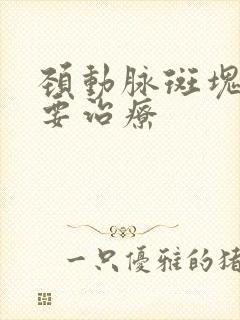 頚動脉斑塊
要治療
一只優雅的猪